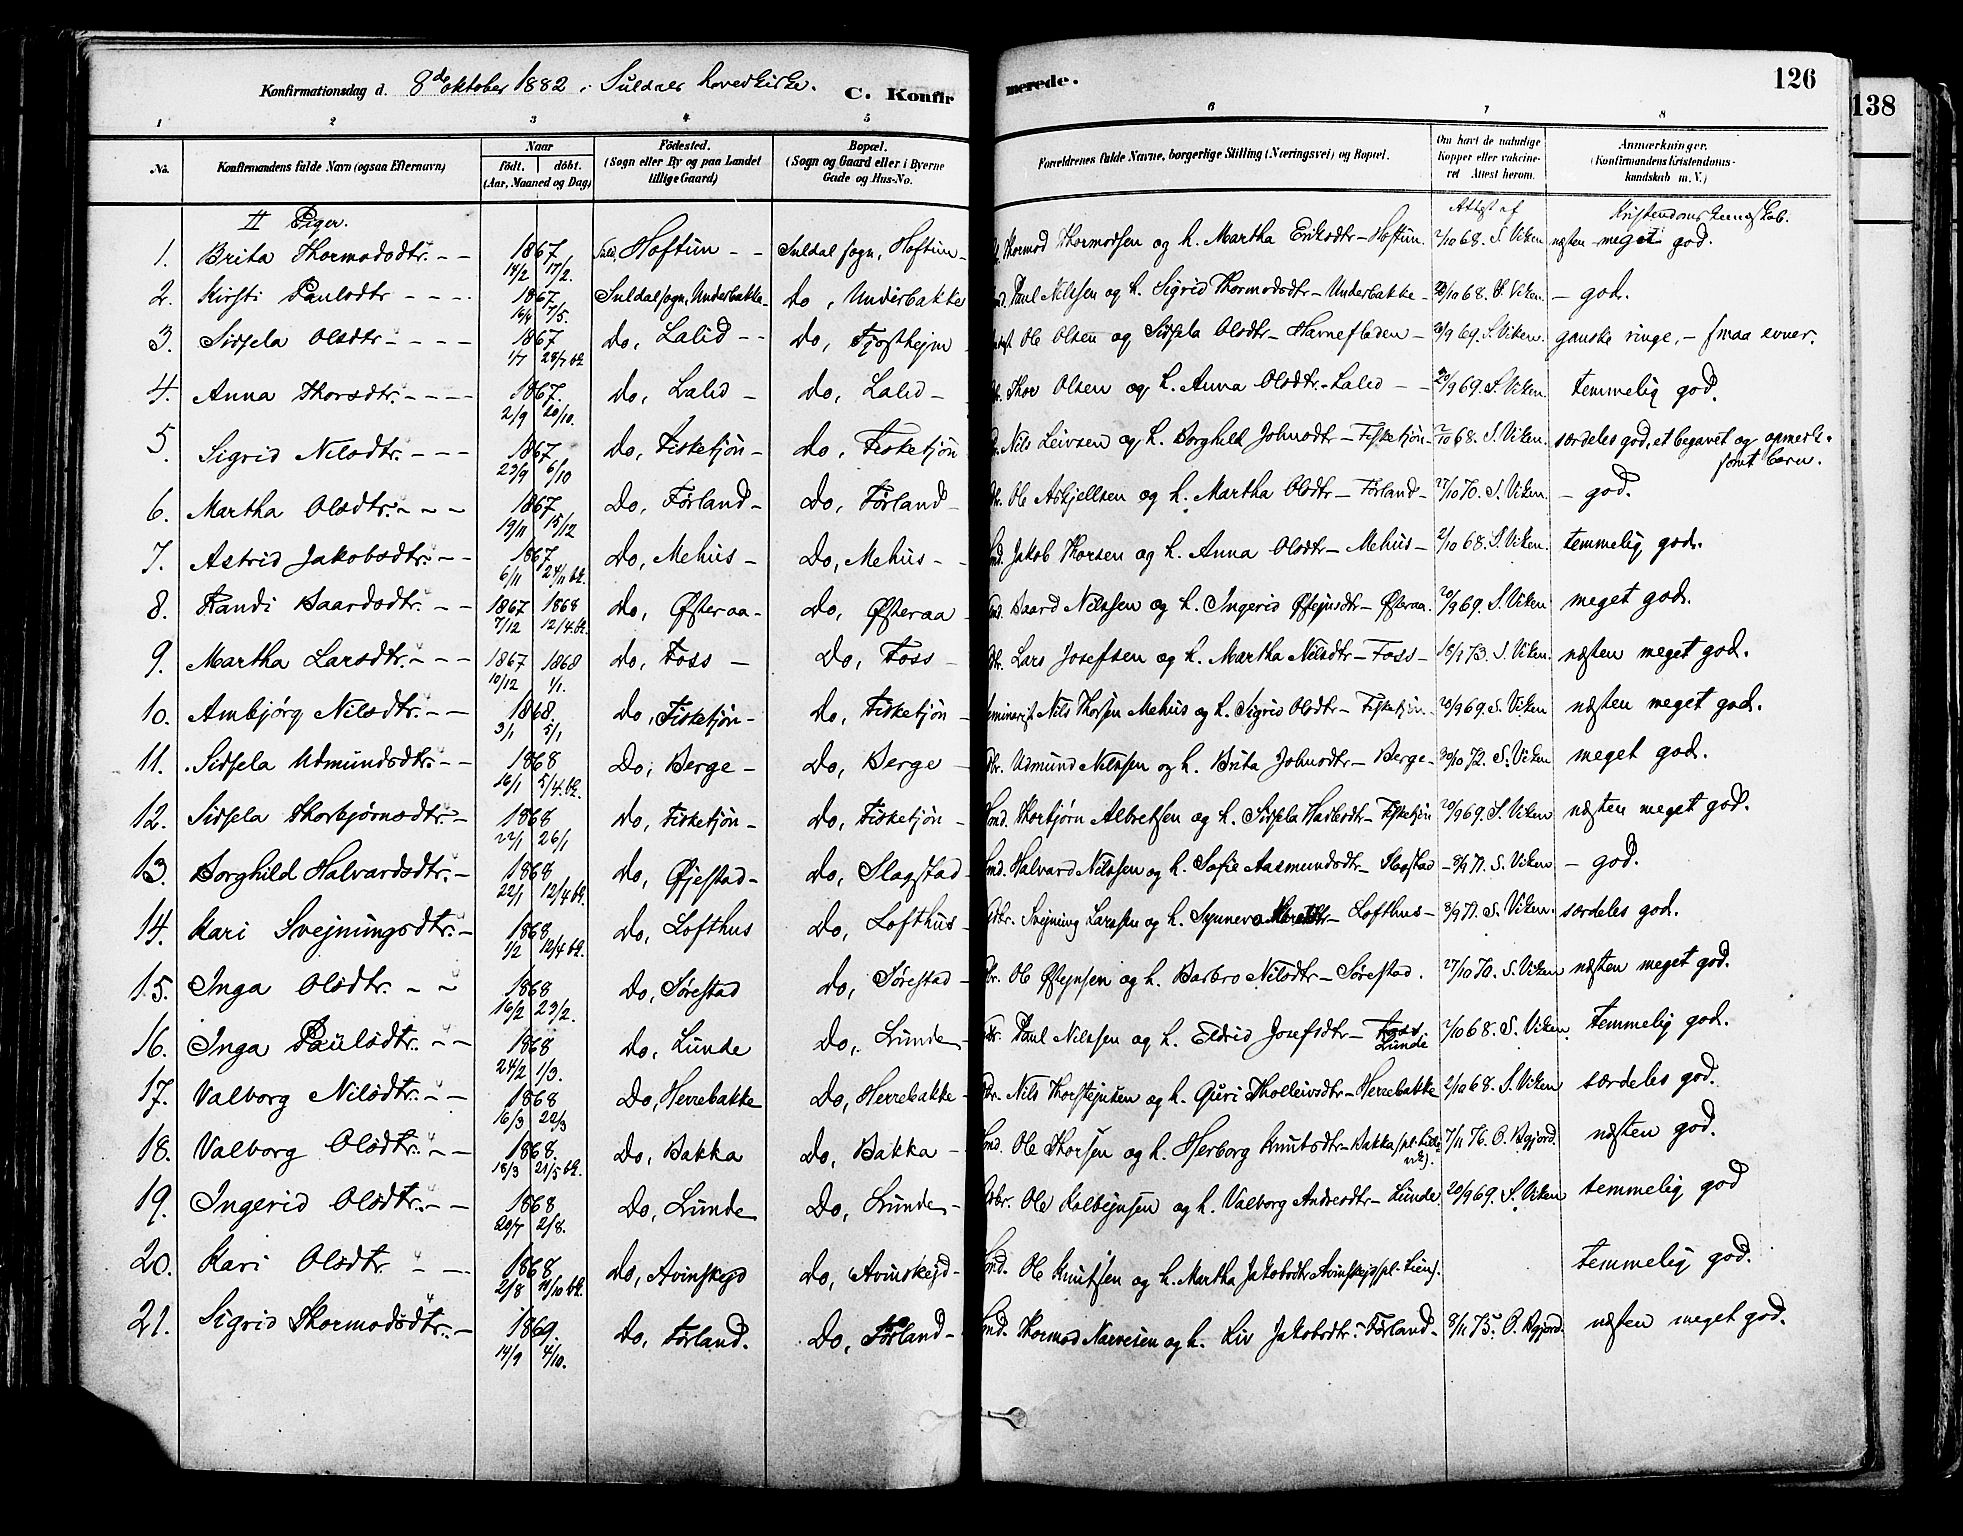 Konfirmationsdag d. 8de oktober 1882 i Suldals hovedkirke. C. Konfir
merede. 126
138
1 2 3 4 5 6 7 8
No. Konfirmandens fulde Navn (ogsaa Efternavn) Naar födt. döbt. (Aar, Maaned og Dag) Födested. (Sogn eller By og paa Landet tillige Gaard) Bopæl. (Sogn og Gaard eller i Byerne Gade og Hus-No. Forældrenes fulde Navne, borgerlige Stilling (Næringsvei) og Bopæl. Om havt de naturlige Kopper eller vaccineret Attest herom. Anmærkninger. (Konfirmandens Kristendomskundskab m. V.)
II Piger. Attest af Kristendoms kundskab.
1. Brita Thormodsdtr. 1867 14/2 17/2. Hoftun Suldal sogn, Hoftun Thormod Thormodsen og h. Martha Eriksdtr - Hoftun. 2/10 68. S. Viken næsten meget god.
2. Kirsti Paulsdtr 1867 16/4 7/5. Suldal sogn, Underbakke do, Underbakke Paul Nilssen og h. Sigrid Thormodsdtr - Underbakke /10 68. S. Viken. - god.
3. Sidsela Olsdtr 1867 1/7 28/7 bk. do, Lalid do, Fjosthejm Ole Olsen og Sidsela Olsdtr - Havnefloden /9 69. S. Viken. ganske ringe, - smaa evner.
4. Anna Thorsdtr. 1867. 2/9 20/10. do, Lalid do, Lalid Thor Olsen og h. Anna Olsdtr - Lalid 20/9 69. S. Viken. temmelig god.
5. Sigrid Nilsdtr. 1867 23/9 6/10 do, Fisketjön do, Fisketjön Nils Leivsen og h. Borghild Johnsdtr - Fisketjön 2/10 68. S. Viken. særdeles god, et begavet og opmerksomt barn.
6. Martha Olsdtr. 1867 19/11 15/12 do, Førland do, Førland Ole Askjellsen og h. Martha Olsdtr - Førland 27/10 70. S. Viken. - god.
7. Astrid Jakobsdtr. 1867 6/11 24/11 bk. do, Mehus do, Mehus Jakob Thorsen og h. Anna Olsdtr - Mehus 2/10 68. S. Viken. temmelig god.
8. Randi Baardsdtr. 1867 7/12 1868 12/4. bk. do, Østeraa do, Østeraa Baard Nilssen og h. Ingerid Østejnsdtr - Østeraa. 20/9 69. S. Viken meget god.
9. Martha Larsdtr. 1867 10/12 1868 1/1. do, Foss do, Foss Lars Josefsen og h. Martha Nilsdtr - Foss 18/1 73. S. Viken. næsten meget god.
10. Ambjörg Nilsdtr. 1868. 3/1 5/1 do, Fisketjön do, Fisketjön Seminarist Nils Thorsen Mehus og h. Sigrid Olsdtr - Fisketjön 20/9 69. S. Viken næsten meget god.
11. Sidsela Udmundsdtr. 1868 16/1 5/4. bk. do, Berge do, Berge Udmund Nilssen og h. Brita Johnsdtr - Berge 30/10 72. S. Viken meget god.
12. Sidsela Thorbjørnsdtr. 1868 22/1 26/1 do, Fisketjön do, Fisketjön Thorbjørn Albretsen og h. Sidsela Hadlesdtr - Fisketjön 20/9 69. S. Viken næsten meget god.
13. Borghild Halvardsdtr. 1868 22/1 12/4 bk. do, Øjestad do, Slagstad Halvard Nilssen og h. Sofie Aasmundsdtr - Slagstad 8/9 71. S. Viken - god.
14. Kari Svejnungsdtr. 1868 1/2 12/4 bk. do, Lofthus do, Lofthus Svejnung Larssen og h. Synneva - Lofthus 8/9 71. S. Viken. særdeles god.
15. Inga Olsdtr. 1868 16/2 23/2. do, Sørestad do, Sørestad Ole Østejnsen og h. Barbro Nilsdtr - Sørestad. 27/10 70. S. Viken næsten meget god.
16. Inga Paulsdtr. 1868 24/2 1/3. do, Lunde do, Lunde Paul Nilssen og h. Eldrid Josefsdtr - Foss Lunde 2/10 68. S. Viken. temmelig god.
17. Valborg Nilsdtr. 1868 16/3 22/3 do, Herrebakke do, Herrebakke Nils Thorstejnsen og h. Guri Tholleivsdtr - Herrebakke 2/10 68. S. Viken særdeles god.
18. Valborg Olsdtr. 1868. 18/3 21/5 bk. do, Bakka do, Bakka Ole Thorsen og h. Herborg Knutsdtr - Bakka 7/11 76. O. Bgjord. næsten god.
19. Ingerid Olsdtr. 1868 20/7 2/8. do, Lunde do, Lunde Ole Kolbejnsen og h. Valborg Andersdtr - Lunde 20/9 69. S. Viken temmelig god
20. Kari Olsdtr 1868 2/8 /10 bk. do, Avinskejd do, Avinskejd Ole Knutsen og h. Martha Jakobsdtr Avinskejd pl. Lien. temmelig god.
21. Sigrid Thormodsdtr. 1869. 14/9 4/10. do, Førland. do, Førland Thormod Narvesen og h. Liv Jakobsdtr. Førland 8/11 75. O. Bgjord. næsten meget god.